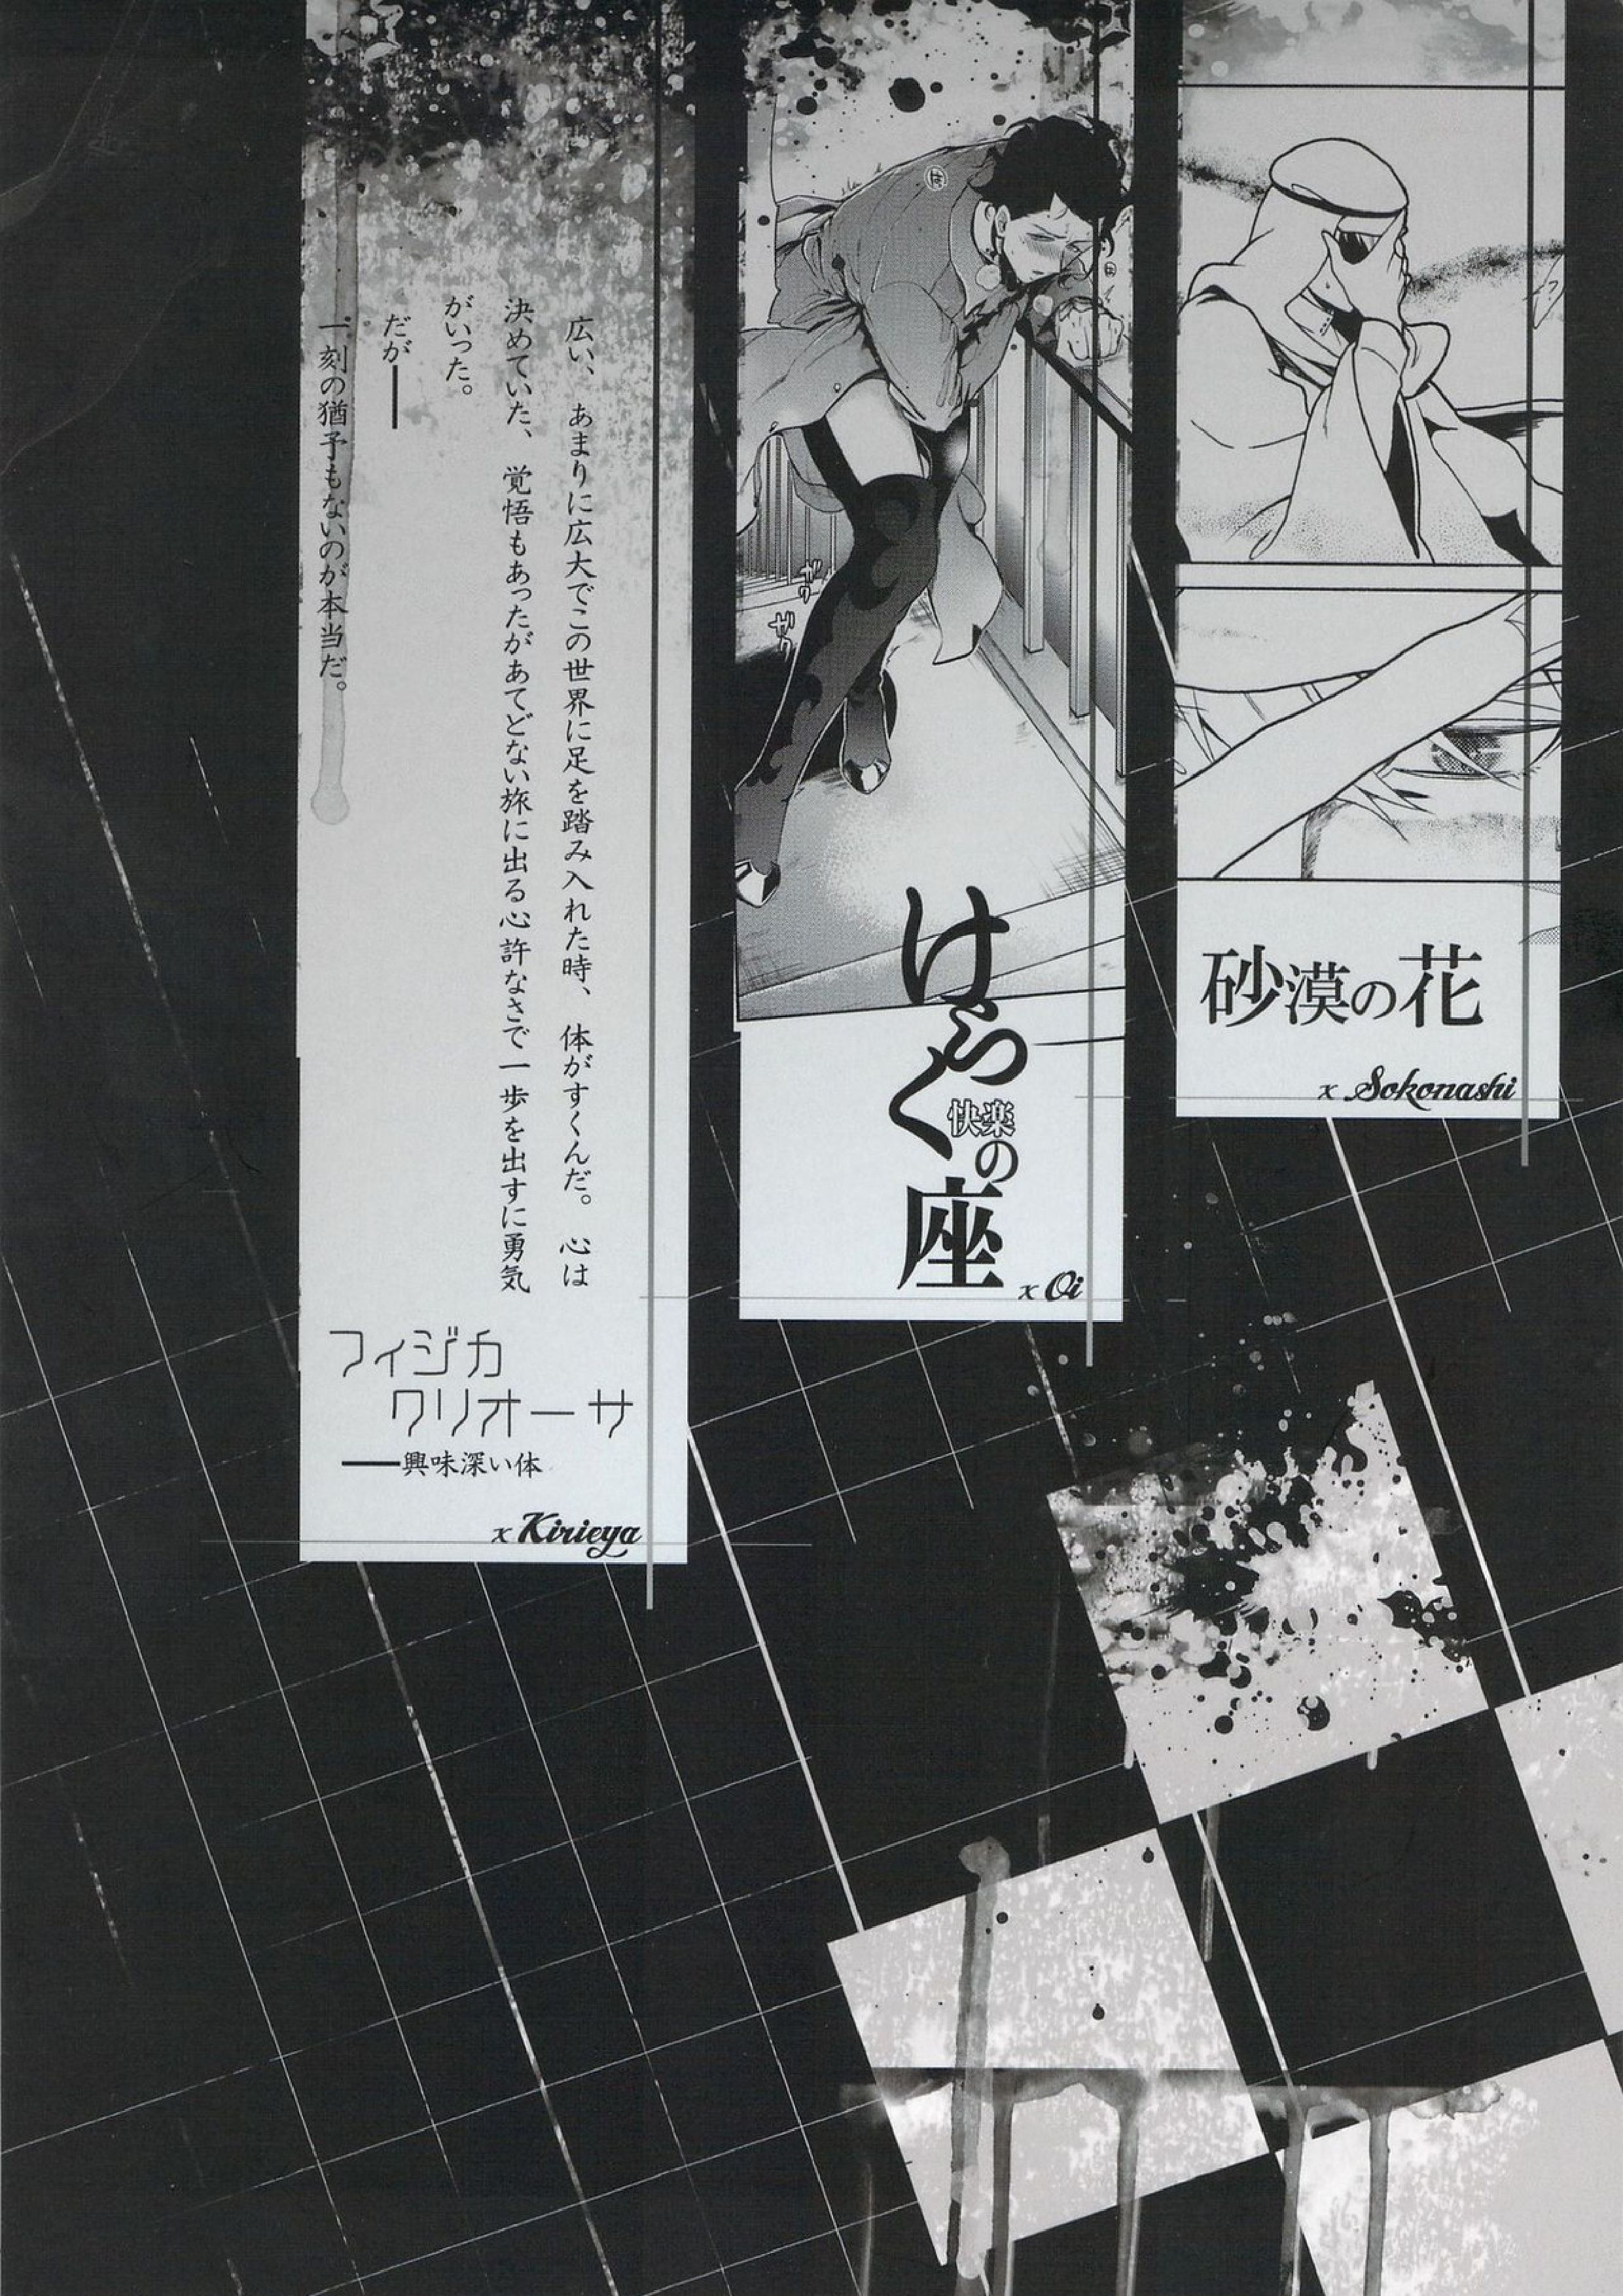 砂漠の花
x Sokonashi
は
は
ガク
ガク
けらく
快楽
の
座
x Oi
広い、あまりに広大でこの世界に足を踏み入れた時、体がすくんだ。心は
決めていた、覚悟もあったがあてどない旅に出る心許なさで一歩を出すに勇気
がいった。
だが――
一刻の猶予もないのが本当だ。
フィジカ
クリオーサ
――興味深い体
x Kirieya